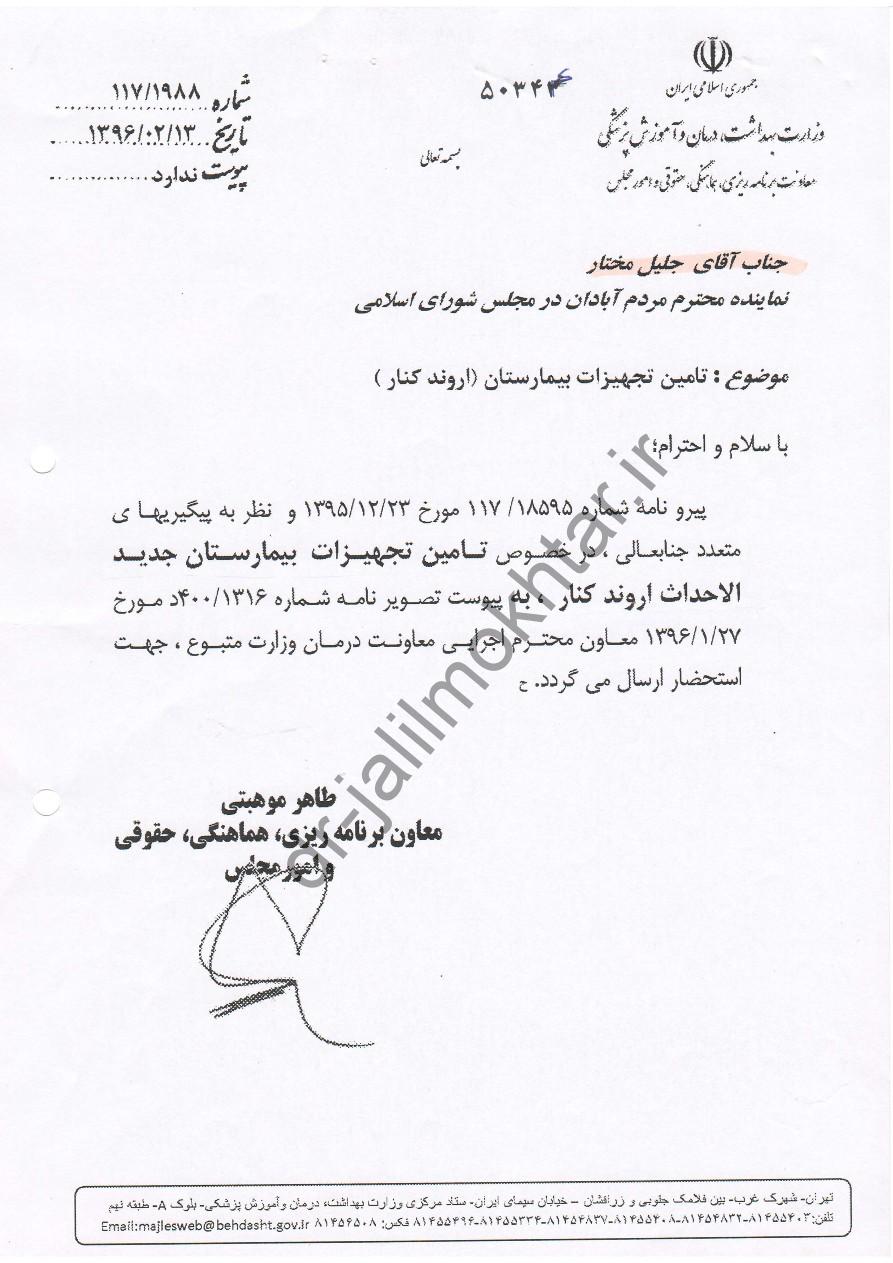 جمهوری اسلامی ایران
وزارت بهداشت، درمان و آموزش پزشکی
معاونت برنامه ریزی، هماهنگی، حقوقی و امور مجلس
بسمه تعالی
شماره ۱۱۷/۱۹۸۸
تاریخ ۱۳۹۶/۰۲/۱۳
پیوست ندارد
جناب آقای جلیل مختار
نماینده محترم مردم آبادان در مجلس شورای اسلامی
موضوع : تامین تجهیزات بیمارستان (اروند کنار )
با سلام و احترام؛
پیرو نامه شماره ۱۸۵۹۵/ ۱۱۷ مورخ ۱۳۹۵/۱۲/۲۳ و نظر به پیگیریها ی
متعدد جنابعالی ، در خصوص تـامین تجهیـزات بیمارسـتان جدیـد
الاحداث اروند کنار ، به پیوست تصویر نامه شماره ۴۰۰/۱۳۱۶د مـورخ
۱۳۹۶/۱/۲۷ معاون محتـرم اجرایی معاونت درمان وزارت متبوع ، جهـت
استحضار ارسال می گردد. ح
طاهر موهبتی
معاون برنامه ریزی، هماهنگی، حقوقی
و امور مجلس
dr-jalilmokhtar.ir
تهران- شهرک غرب- بین فلامک جنوبی و زرافشان – خیابان سیمای ایران- ستاد مرکزی وزارت بهداشت، درمان وآموزش پزشکی- بلوک A- طبقه نهم
تلفن:۸۱۴۵۵۴۰۳-۸۱۴۵۴۸۳۲-۸۱۴۵۵۴۰۸-۸۱۴۵۴۸۳۷-۸۱۴۵۵۳۳۴-۸۱۴۵۵۴۹۶ فکس: ۸۱۴۵۶۵۰۸ Email:majlesweb@behdasht.gov.ir